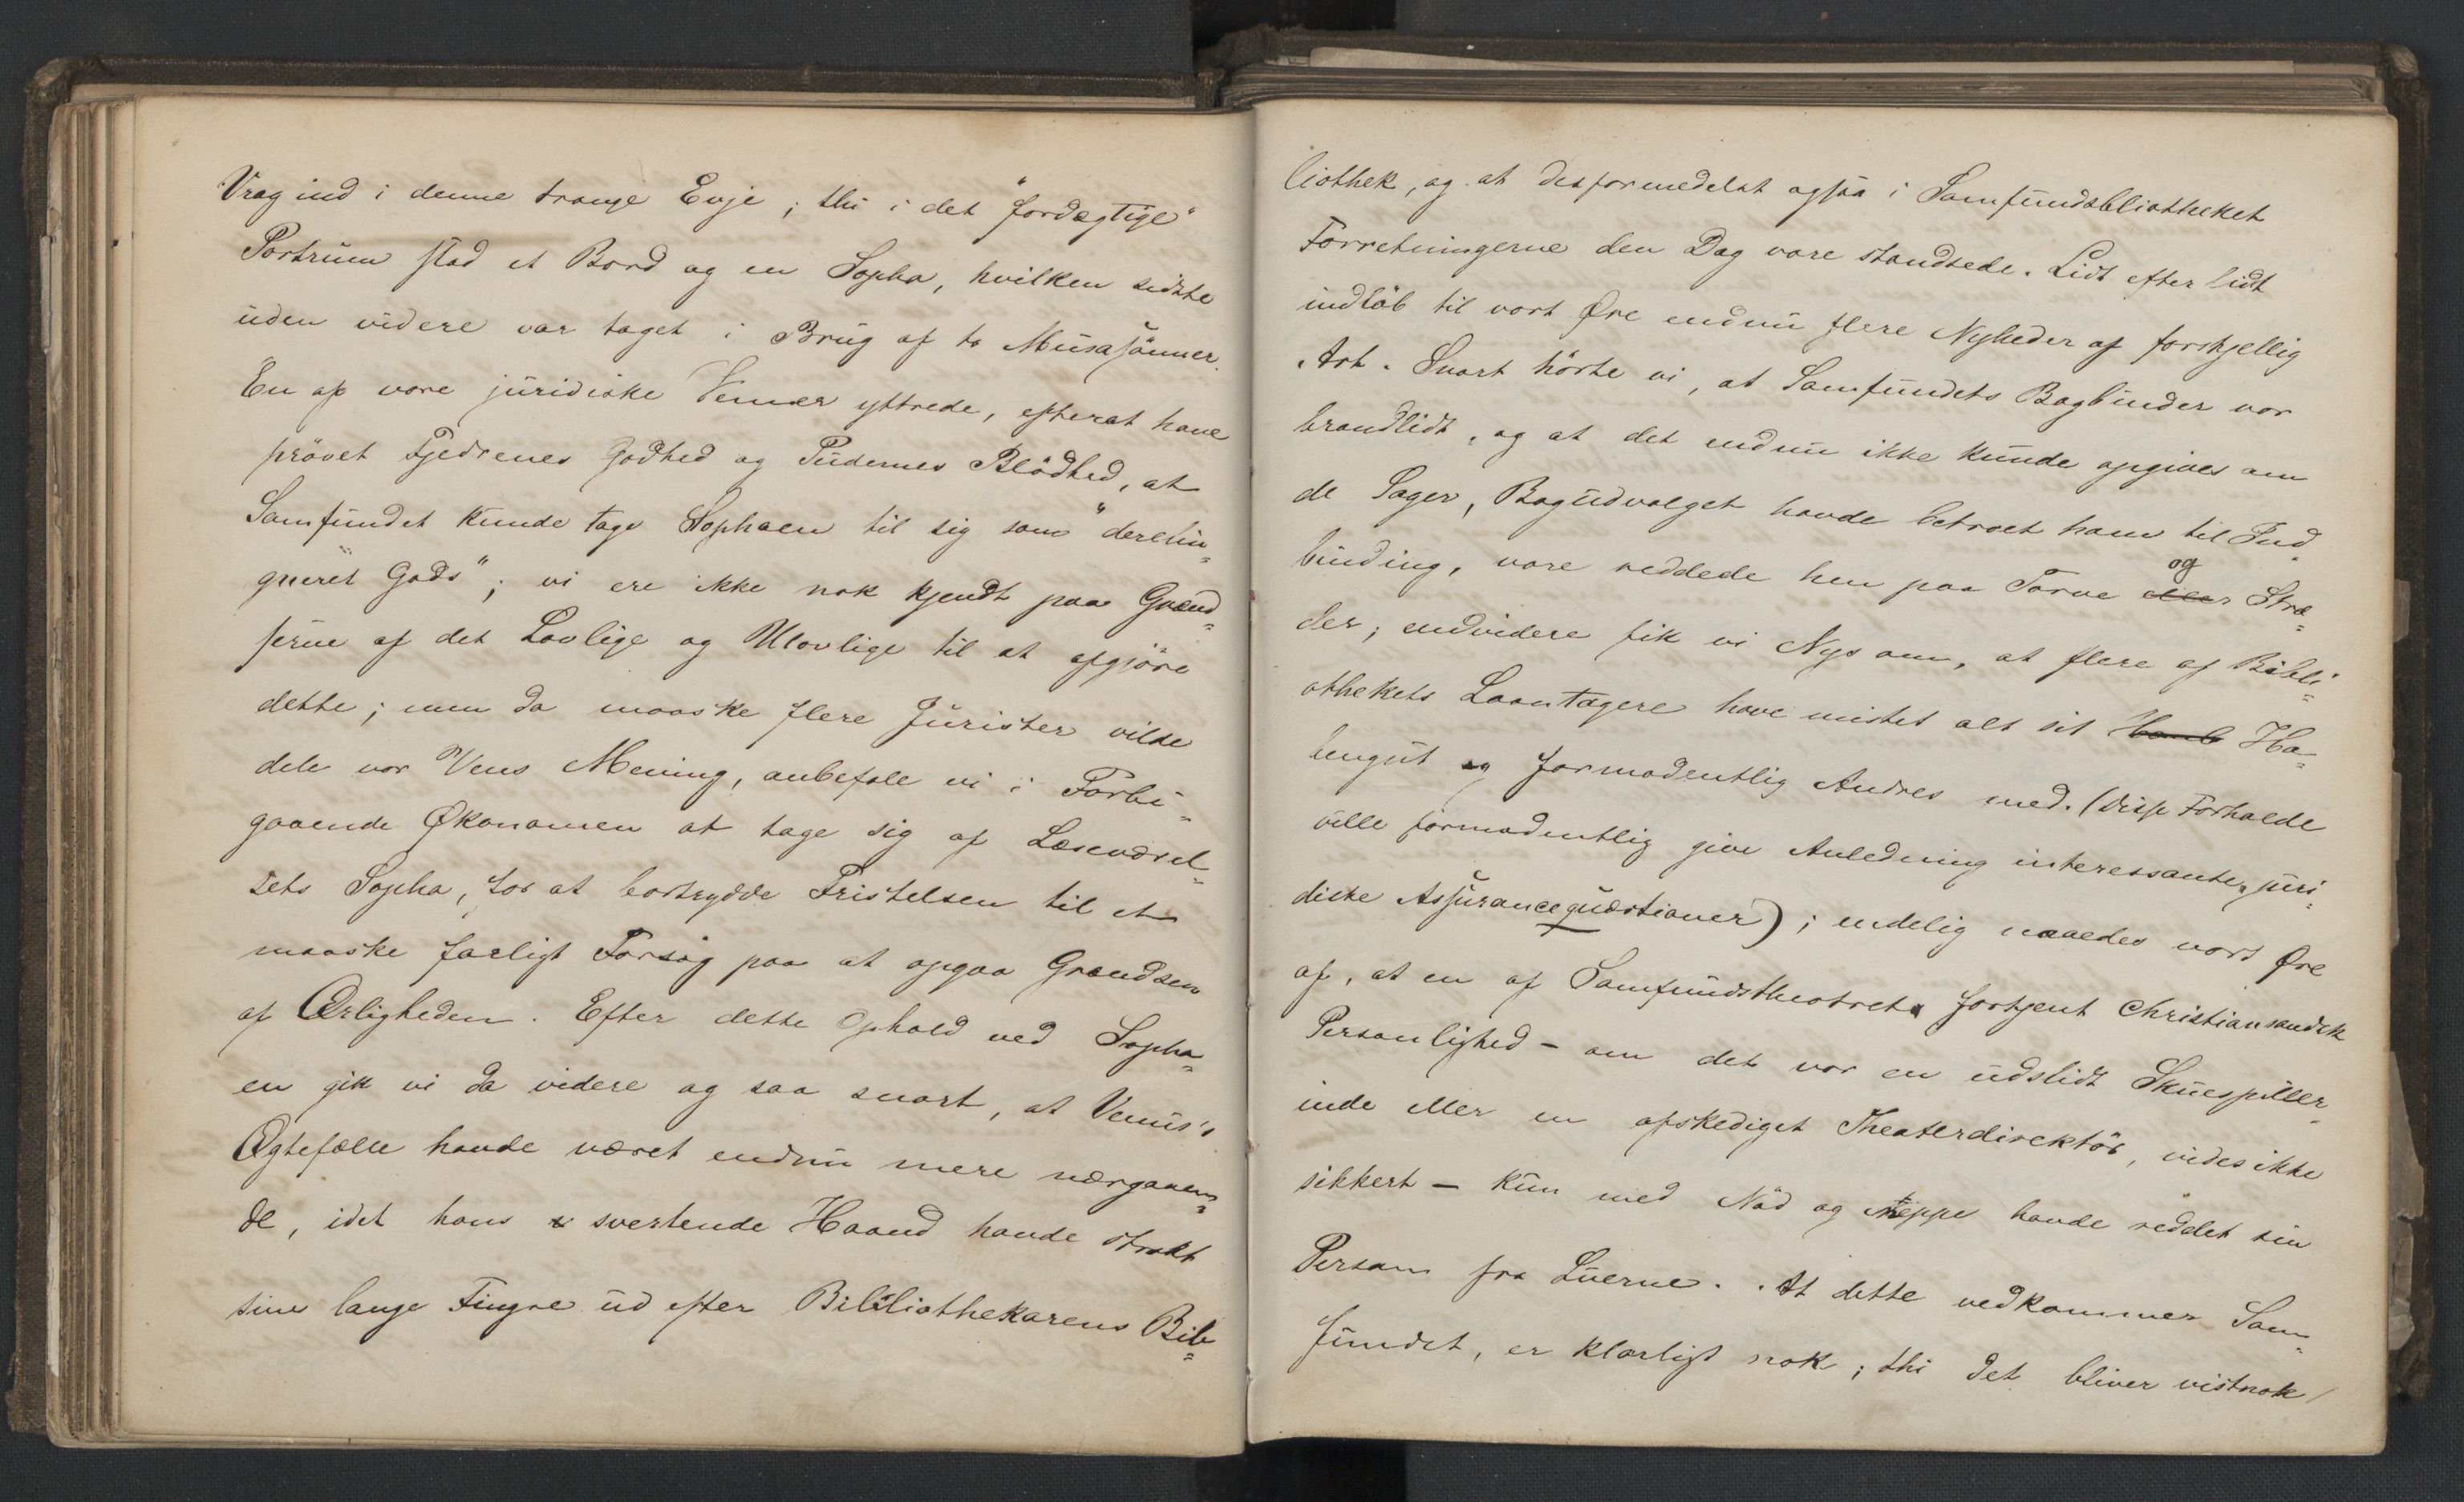 Vrag ind i denne trange Evje; thi i det "fordægtige"
Portrum stod et Bord og en Sopha, hvilken sidste
uden videre var taget i Brug af to Musasönner.
En af vore juridiske Venner yttrede, efterat have
prövet Fjedrenes Godhed og Pudernes Blödhed, at
Samfundet kunde tage Sophaen til sig som "derelin-
qveret Gods"; vi ere ikke nok kjendt paa Grænd-
serne af det Lovlige og Ulovlige til at afgjöre
dette; men da maaske flere Jurister vilde
dele vor Vens Mening, anbefale vi i Forbi-
gaaende Økonomen at tage sig af Læseværel-
sets Sopha, for at bortrydde Fristelsen til et
maaske farligt Forsög paa at opgaa Grændsen
af Ærligheden. Efter dette Ophold ved Sopha-
en gik vi da videre og saa snart, at Venus's
Ægtefælle havde været endnu mere nærgaaen-
de, idet hans svertende Haand havde strakt
sine lange Fingre ud efter Bibliothekarens Bib-
liothek, og at desformedelst ogsaa i Samfundsbliotheket
Forretningerne den Dag vare standsede. Lidt efter lidt
indlöb til vort Øre endnu flere Nyheder af forskjellig
Art. Snart hörte vi, at Samfundets Bogbinder var
brandlidt, og at det endnu ikke kunde opgives om
de Sager, Bogudvalget havde betroet ham til Ind-
binding, vare reddede hen paa Torve og Stræ-
der; endvidere fik vi Nys om, at flere af Bibli-
othekets Laantagere have mistet alt sit Ha-
bengut og formodentlig Andres med. (Disse Forholde
ville formodentlig give Anledning interessante juri-
diske Assurancequæstioner); endelig naaedes vort Øre
af, at en af Samfundstheatret forkjent Christiansandsk
Personlighed - om det var en udslidt Skuespiller-
inde eller en afskediget Theaterdirektör, vides ikke
sikkert - kun med Nöd og Neppe havde reddet sin
Person fra Luerne. At dette vedkommer Sam-
fundet, er klarligt nok; thi det bliver vistnok